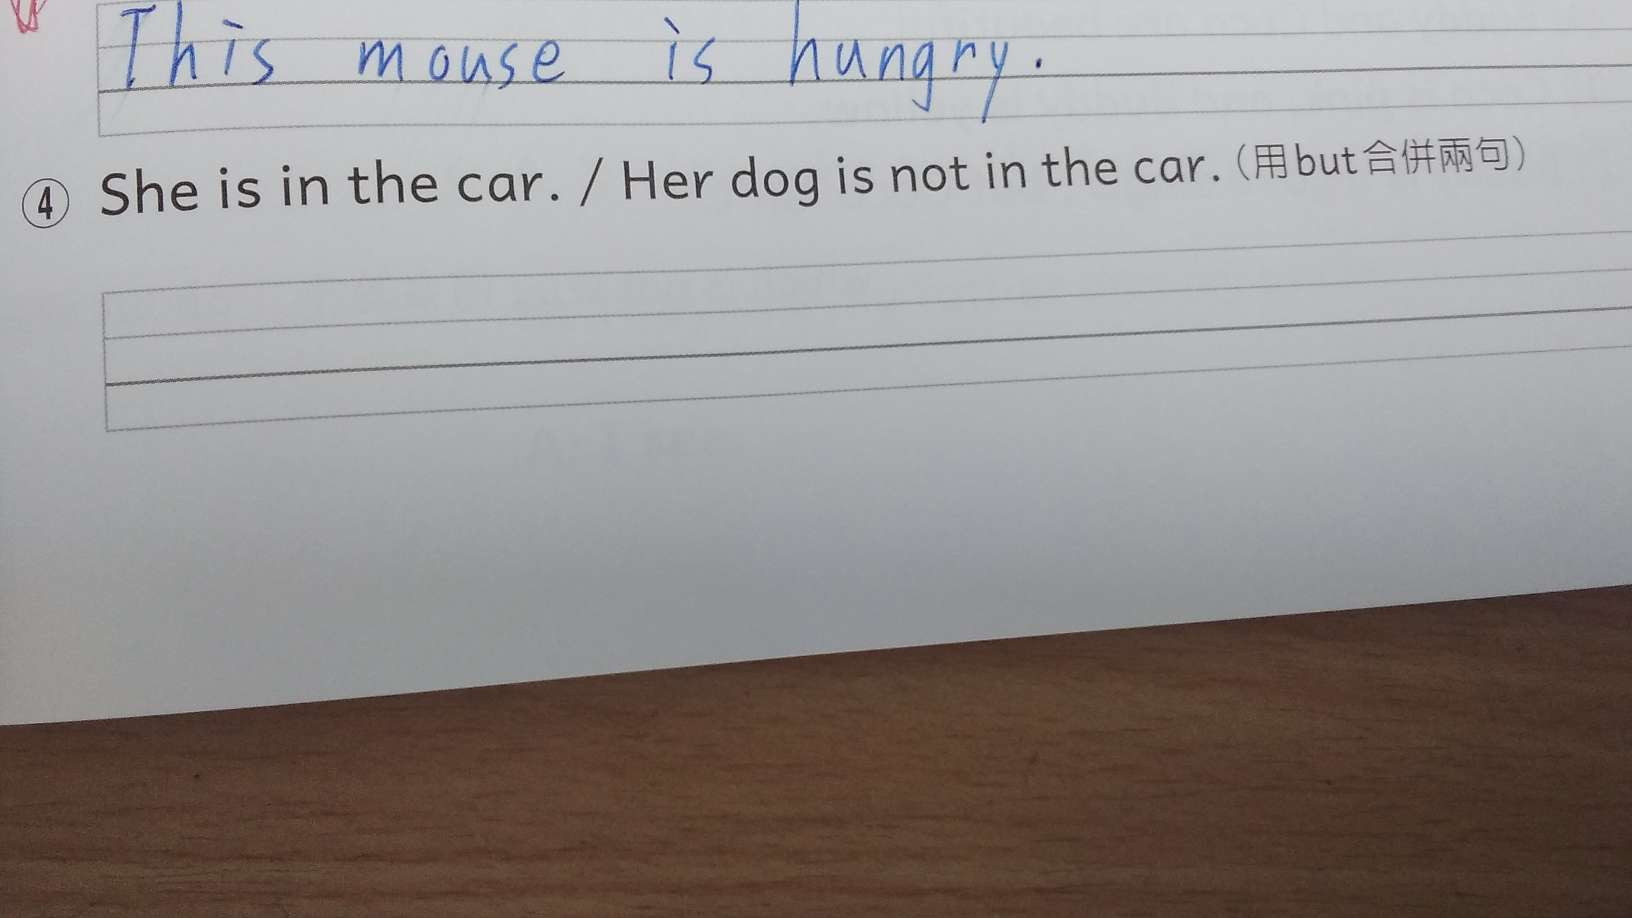 This mouse is hungry.
④ She is in the car. / Her dog is not in the car. (用but合併兩句)